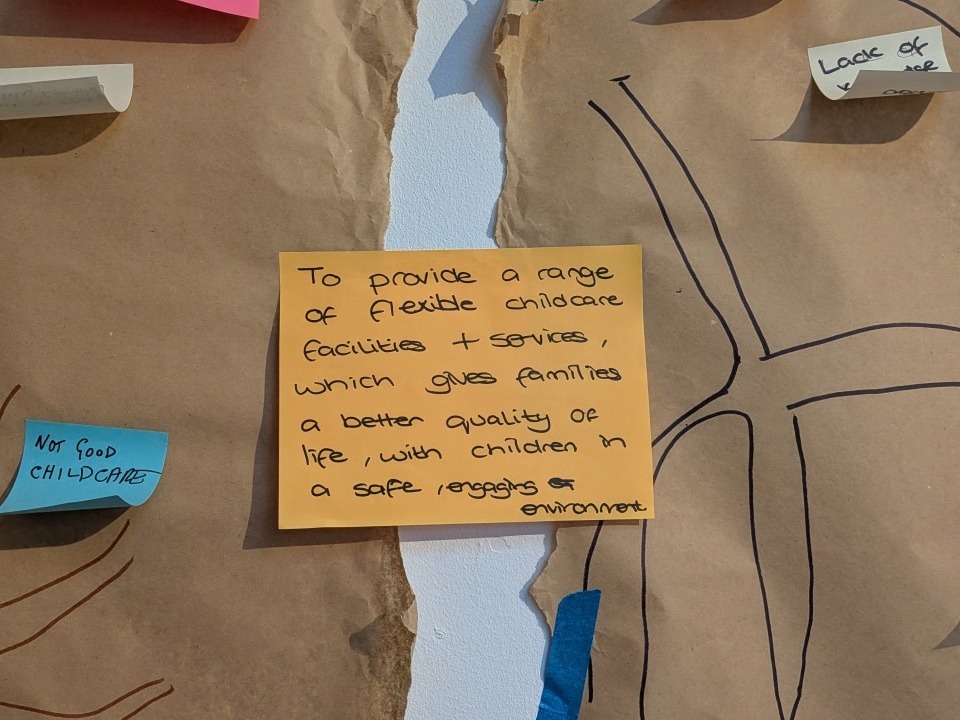 Lack of
To provide a range
of flexible childcare
facilities + services,
which gives families
a better quality of
life, with children in
a safe, engaging
environment
NOT GOOD
CHILDCARE